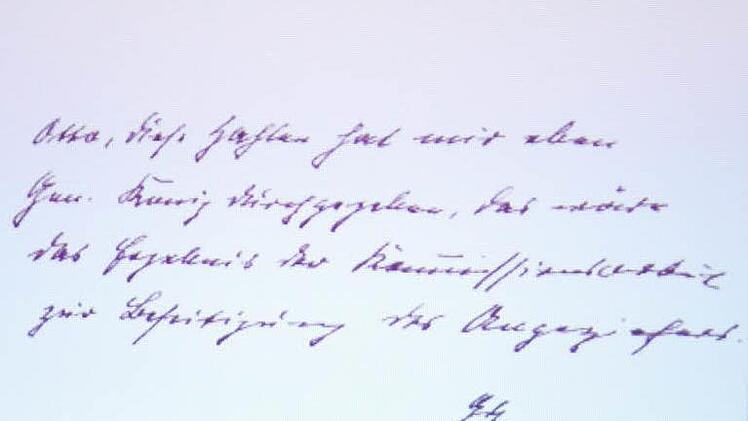 Otto, diese Zahlen hat mir eben
Gen. König durchgegeben, das wäre
das Ergebnis der Kommissionsarbeit
zur Beseitigung des Ungeziefers.